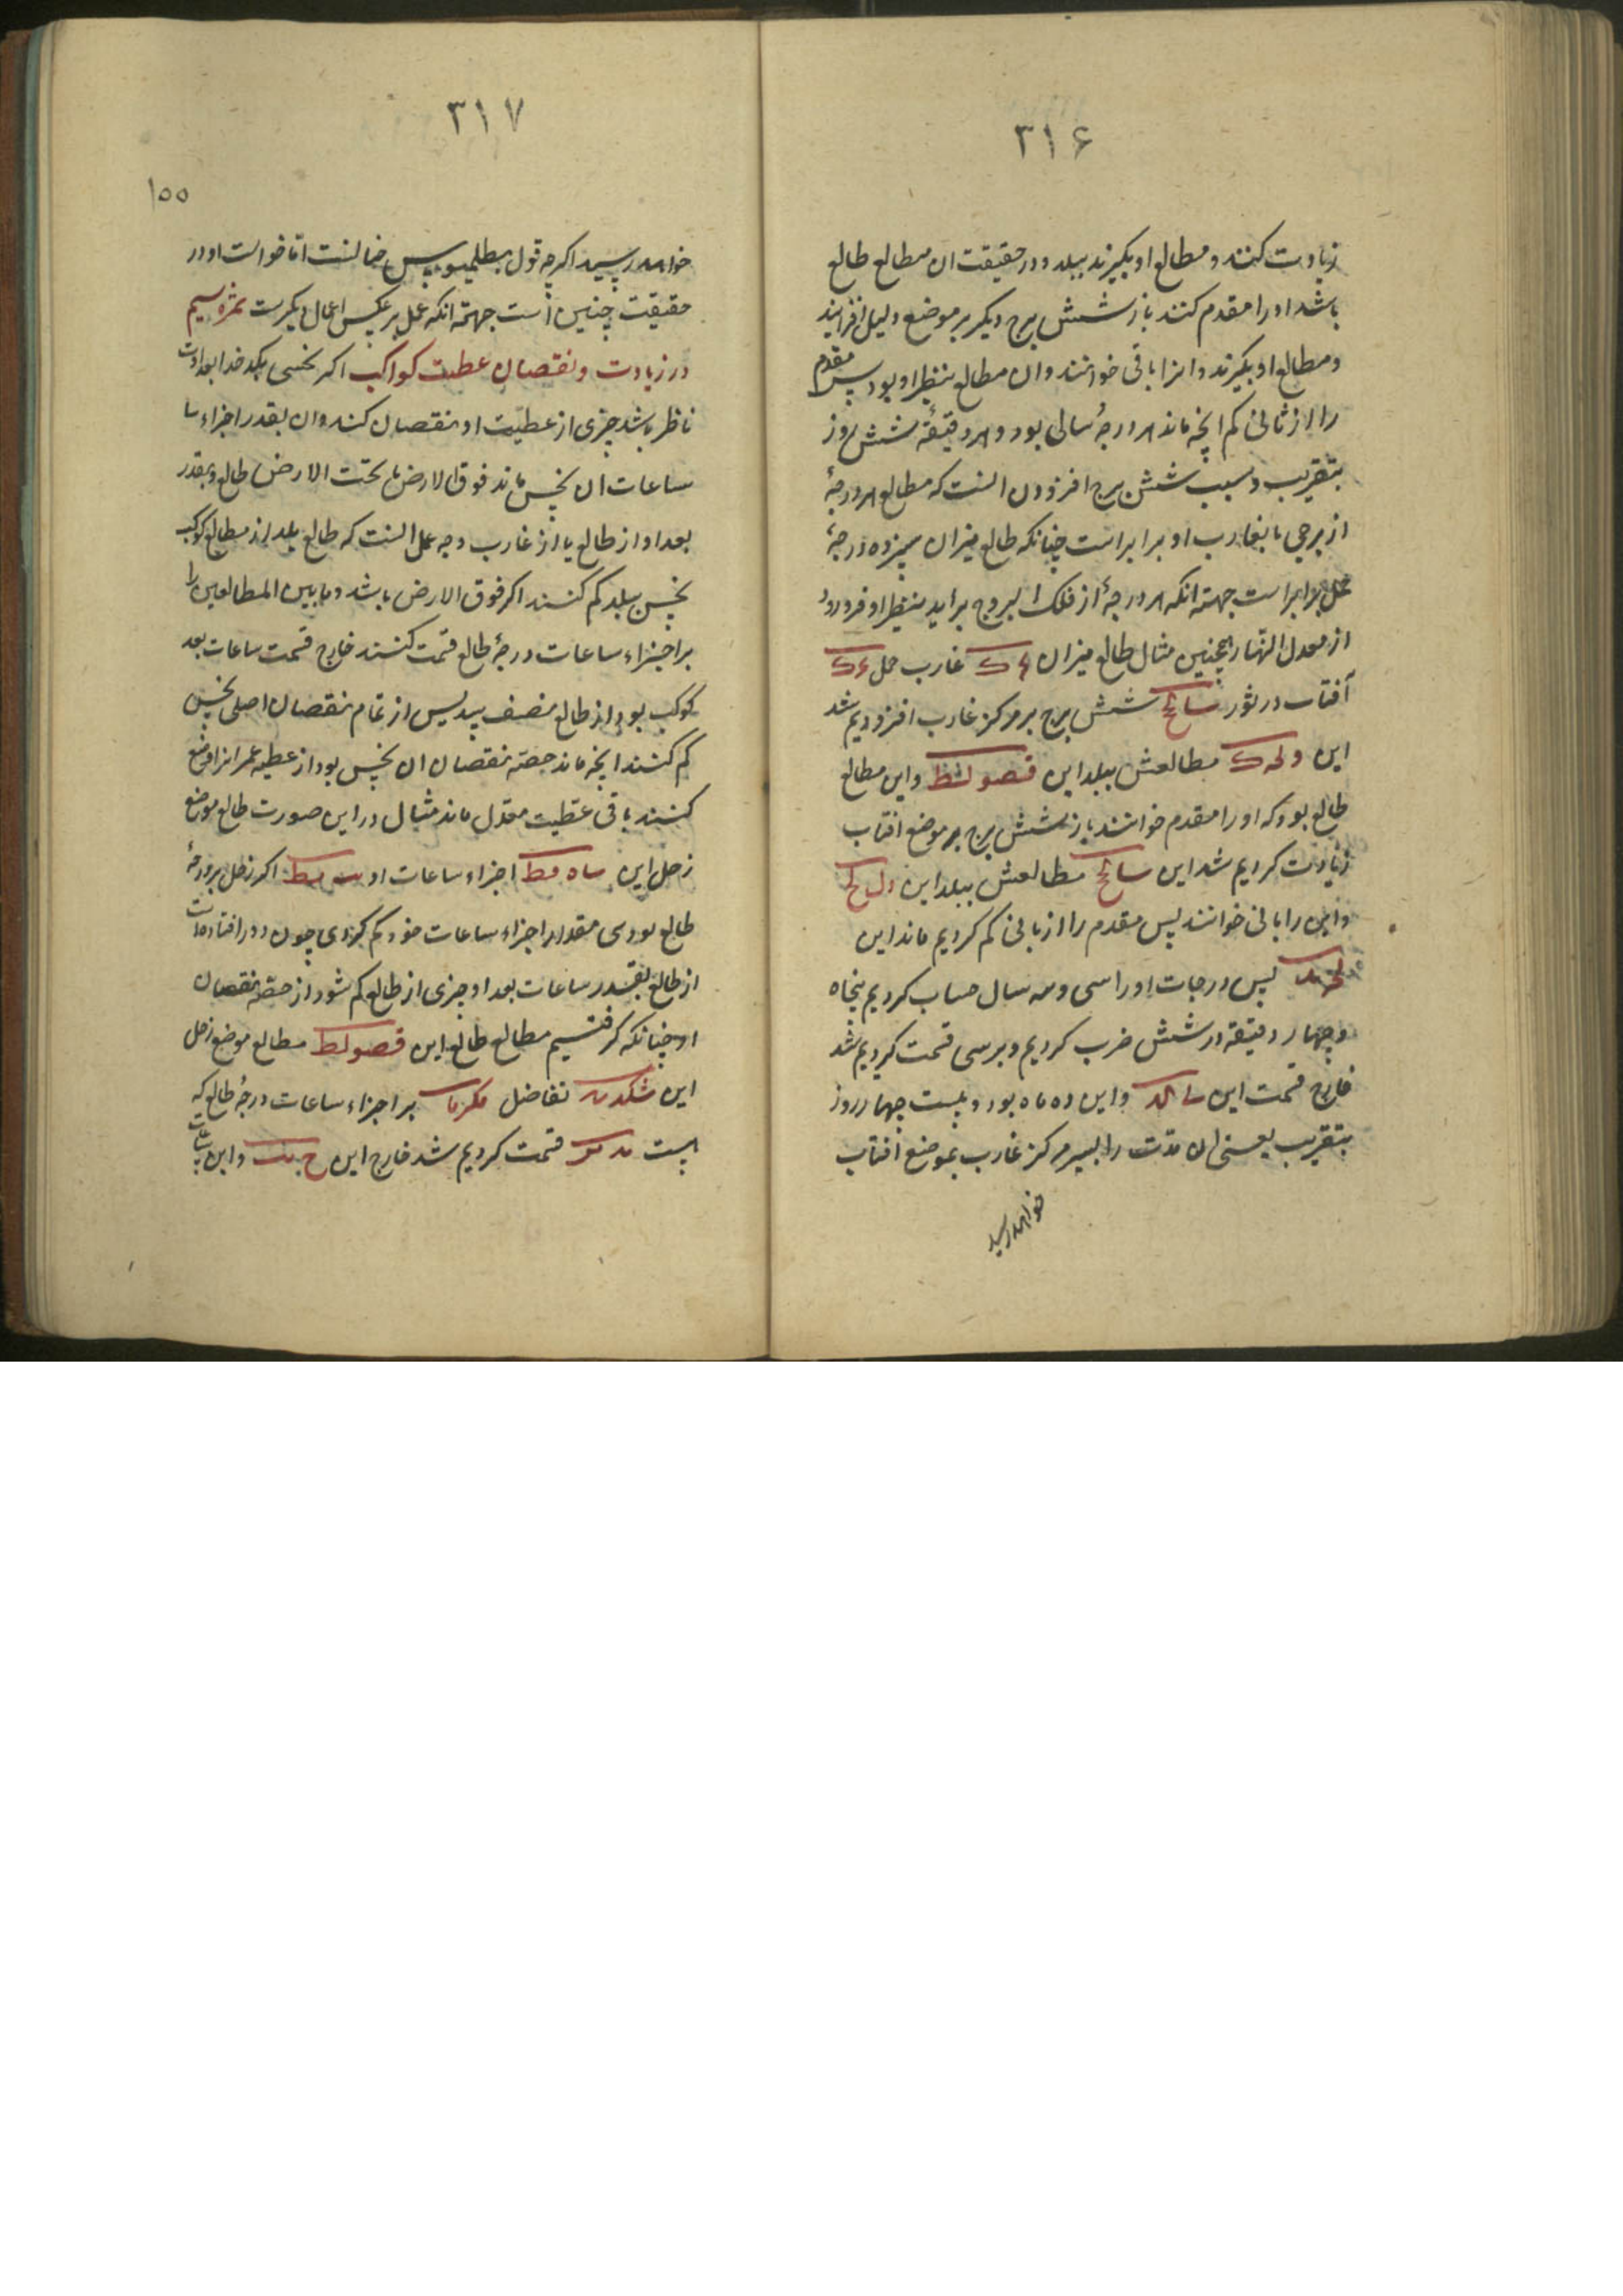 ۳۱۶
زیادت کنند و مطالع او بگیرند ببلد و در حقیقت ان مطالع طالع
باشد او را مقدم کنند باز شش برج دیگر بر موضع دلیل افزایند
و مطالع او بگیرند و انرا باقی خوانند و ان مطالع بنظیر او بود پس مقدم
را از ثانی کم انچه ماند هر درجۀ سالی بود و هر دقیقۀ شش روز
بتقریب و سبب شش برج افزودن النست که مطالع هر درجۀ
از برجی با بغارب او برابر است چنانکه طالع میزان سیزده درجۀ
حمل برابر است جهته انکه هر درجۀ از فلک البروج براید بنظیر او فرو رود
از معدل النهار همچنین مثال طالع میزان غارب حمل
آفتاب در ثور شش برج بر مرکز غارب افزودیم شد
این مطالعش ببلد این قصو لط و این مطالع
طالع بود که او را مقدم خوانند باز شش برج بر موضع افتاب
زیادت کردیم شد این مطالعش ببلد این
و این را ثانی خوانند پس مقدم را از ثانی کم کردیم ماند این
پس درجات او را سی و سه سال حساب کردیم پنجاه
و چهار دقیقه در شش ضرب کردیم و بر سی قسمت کردیم شد
خارج قسمت این و این ده ماه بود و بیست چهار روز
بتقریب یعنی ان مدت را بسیر مرکز غارب بموضع افتاب
خواهد رسید
۳۱۷
۱۵۵
خواهد رسید اکرچه قول بطلمیوس مخا لنست اما خواست او در
حقیقت چنین است جهته انکه عمل بر عکس اعمال دیکرست ثمره سیم
در زیادت و نقصان عطیت کواکب اکر نحسی بکدخدا بعداوت
ناظر باشد چیزی از عطیت او نقصان کند و ان بقدر اجزاء سا
ساعات ان نحس ماند فوق الارض یا تحت الارض طالع و بقدر
بعد او از طالع یا از غارب وجه عمل النست که طالع بلد از مطالع کوکب
نحس ببلد کم کنند اکر فوق الارض باشد و ما بین المطالعین را
بر اجزاء ساعات درجۀ طالع قسمت کنند خارج قسمت ساعات بعد
کوکب بود از طالع پس از تمام نقصان اصلی نحس
کم کنند انچه ماند حصۀ نقصان ان نحس بود از عطیه عمر انرا وضع
کنند باقی عطیت معدل ماند مثال در این صورت طالع موضع
زحل این اجزاء ساعات او اکر زحل بر درجۀ
طالع بودی مقدار اجزاء ساعات خود کم کردی چون دور افتاده است
از طالع بقدر ساعات بعد او چیزی از طالع کم شود از حصۀ نقصان
او چنانکه کرفتیم مطالع طالع این قصو لط مطالع موضع زحل
این تفاضل بر اجزاء ساعات درجۀ طالع که
است قسمت کردیم شد خارج این و این